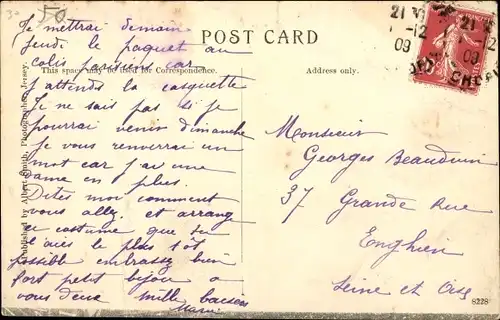 50
Je mettrai demain
jeudi le paquet au
colis parisiens car
j'attends la casquette
Je ne sais pas si je
pourrai venir dimanche
je vous renverrai un
mot car j'ai une
dame en plus.
Dites moi comment
vous allez. et arrange
ce costume que tu
l'aies le plus tôt
possible embrassez bien
fort petit bijou à
vous deux mille baisers
Marie
POST CARD
This space may be used for Correspondence.
Address only.
Published by Albert Smith, Photographer, Jersey.
21
-12
09
21
-12
09
Monsieur
Georges Beaudouin
37 Grande Rue
Enghien
Seine et Oise
8228